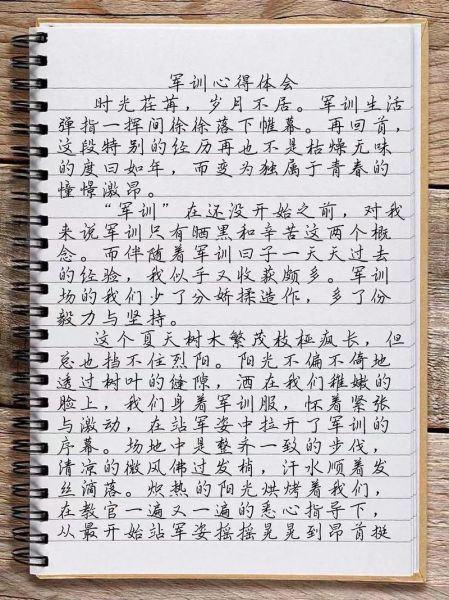 军训心得体会
时光荏苒，岁月不居。军训生活
弹指一挥间徐徐落下帷幕。再回首，
这段特别的经历再也不是枯燥无味
的度日如年，而变为独属于青春的
憧憬激昂。
“军训”在还没开始之前，对我
来说军训只有晒黑和辛苦这两个概
念。而伴随着军训日子一天天过去
的经验，我似乎又收获颇多。军训
场的我们少了分娇揉造作，多了份
毅力与坚持。
这个夏天树木繁茂枝桠疯长，但
总也挡不住烈阳。阳光不偏不倚地
透过树叶的缝隙，洒在我们稚嫩的
脸上，我们身着军训服，怀着紧张
与激动，在站军姿中拉开了军训的
序幕。场地中是整齐一致的步伐，
清凉的微风佛过发梢，汗水顺着发
丝滴落。炽热的阳光烘烤着我们，
在教官一遍又一遍的悉心指导下，
从最开始站军姿摇摇晃晃到昂首挺